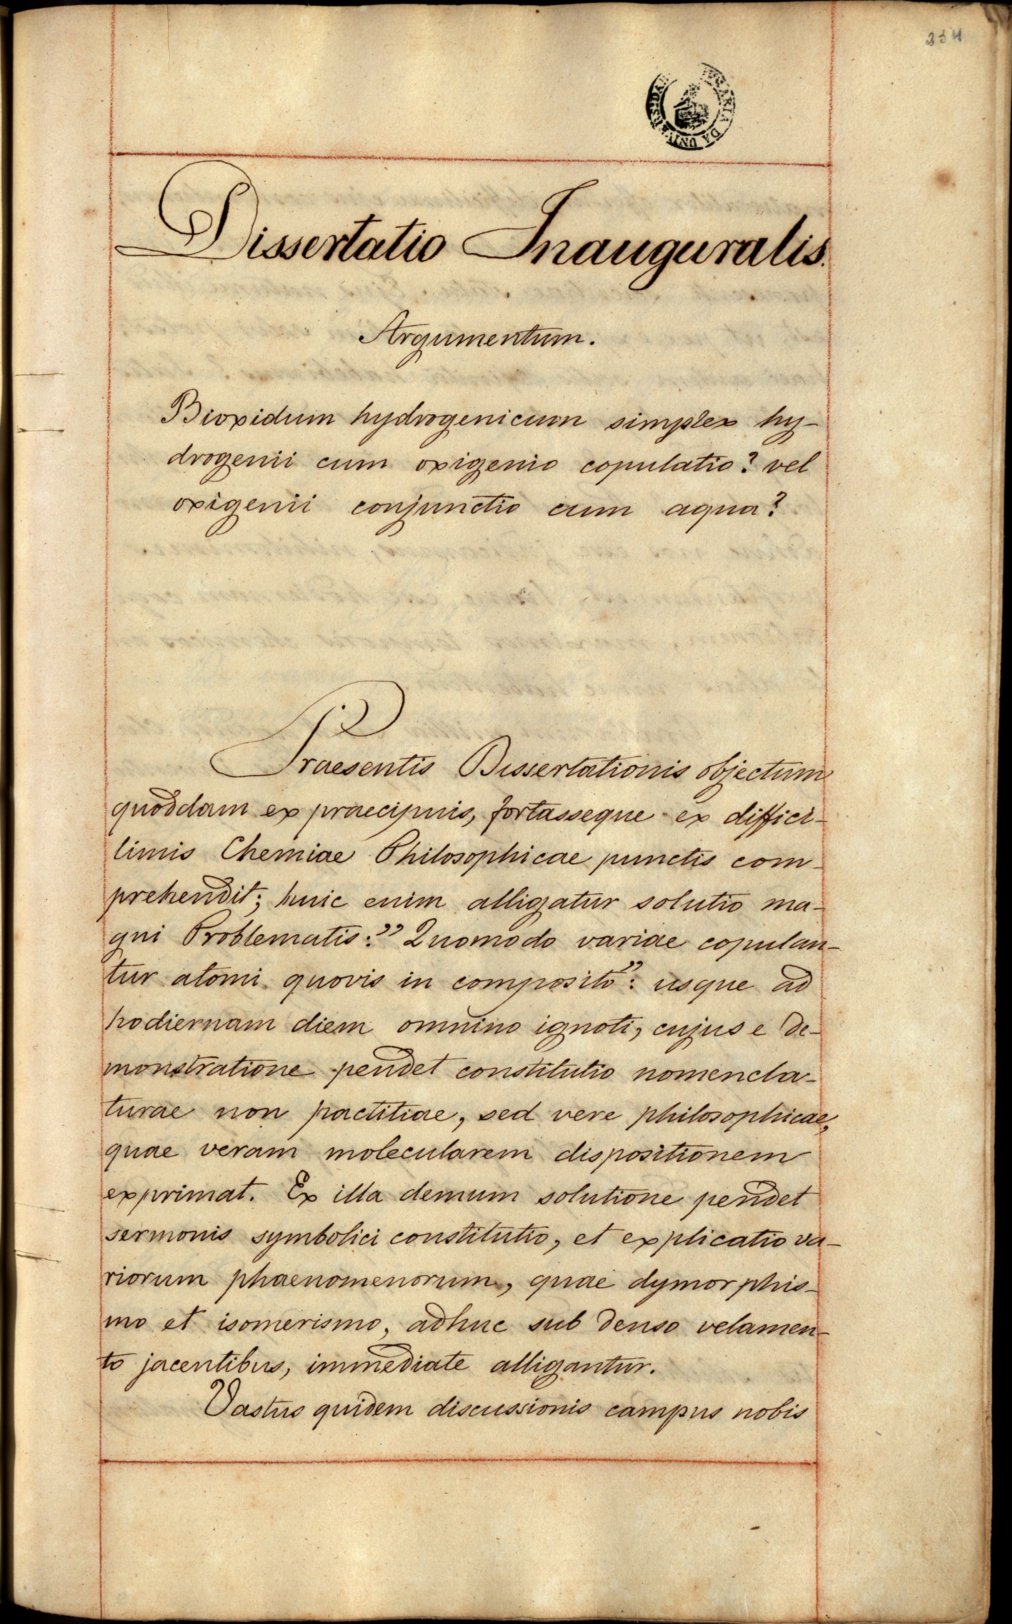 334
Dissertatio Inauguralis.
Argumentum.
Bioxidum hydrogenicum simplex hy-
drogenii cum oxigenio copulatio? vel
oxigenii conjunctio cum aqua?
Praesentis Dissertationis objectum
quoddam ex praecipuis, fortasseque ex diffici-
limis Chemiae Philosophicae punctis com-
prehendit; huic enim alligatur solutio ma-
gni Problematis: "Quomodo variae copulan-
tur atomi quovis in composito": usque ad
hodiernam diem omnino ignoti, cujus e de-
monstratione pendet constitutio nomencla-
turae non factitiae, sed vere philosophicae,
quae veram molecularem dispositionem
exprimat. Ex illa demum solutione pendet
sermonis symbolici constitutio, et explicatio va-
riorum phaenomenorum, quae dymorphis-
mo et isomerismo, adhuc sub denso velamen-
to jacentibus, immediate alligantur.
Vastus quidem discussionis campus nobis